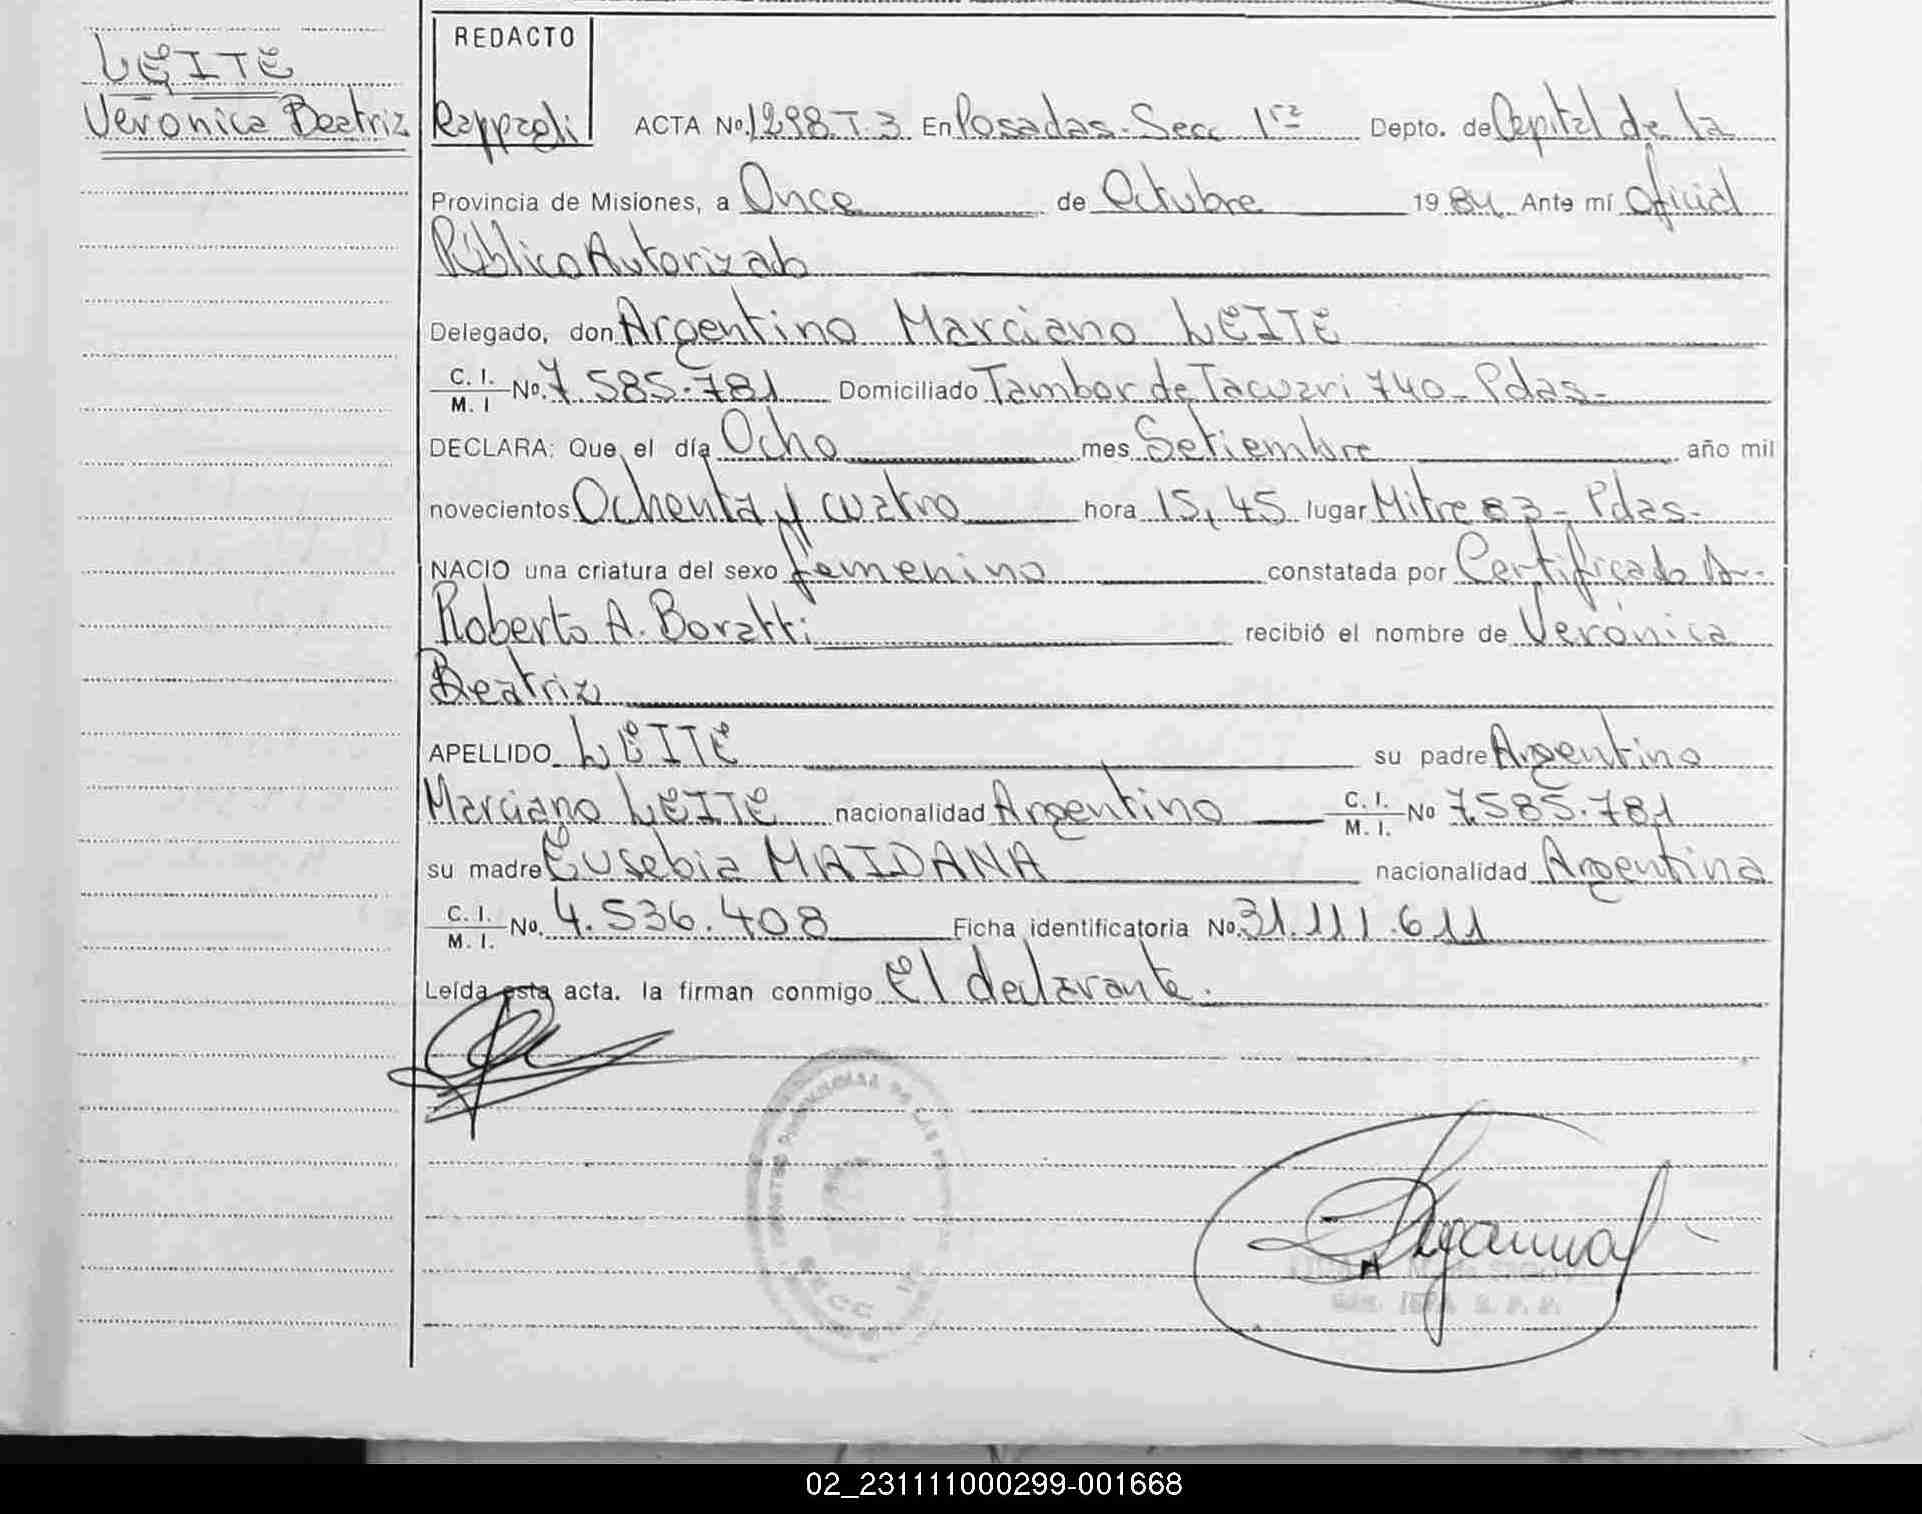 LEITE
Verónica Beatriz
REDACTO
Rappaoli
ACTA No. 1298. T 3 En Posadas. Secc 1ra Depto. de Capital de la
Provincia de Misiones, a Once de Octubre 1984 Ante mí Oficial
Público Autorizado
Delegado, don Argentino Marciano LEITE
C. I. M. I No. 7.585.781 Domiciliado Tambor de Tacuari 740 - Pdas -
DECLARA: Que el día Ocho mes Setiembre año mil
novecientos Ochenta y cuatro hora 15,45 lugar Mitre 83 - Pdas -
NACIO una criatura del sexo femenino constatada por Certificado Dr.
Roberto A. Boratti recibió el nombre de Verónica
Beatriz
APELLIDO LEITE su padre Argentino
Marciano LEITE nacionalidad Argentino C. I. M. I. No 7.585.781
su madre Eusebia MAIDANA nacionalidad Argentina
C. I. M. I. No. 4.536.408 Ficha identificatoria No. 31.111.611
Leída esta acta. la firman conmigo El declarante.
SECC
02_231111000299-001668